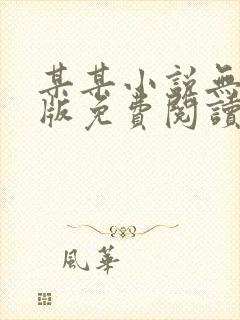 某某小說無
版免費閱讀
風華